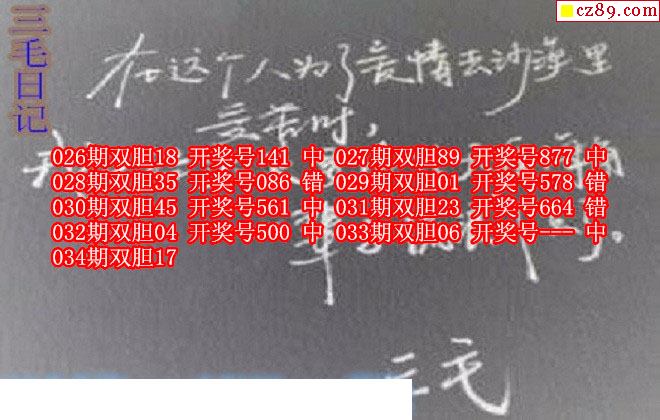 cz89.com
三毛日记
在这个人为了爱情去沙漠里
受苦时，
026期双胆18 开奖号141 中 027期双胆89 开奖号877 中
028期双胆35 开奖号086 错 029期双胆01 开奖号578 错
030期双胆45 开奖号561 中 031期双胆23 开奖号664 错
032期双胆04 开奖号500 中 033期双胆06 开奖号--- 中
034期双胆17
三毛